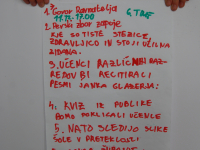 1. Govor Ravnatelja
11.75-17.00
2. Pevski zbor zapoje
KJE SO TISTE STEZICE,
ZDRAVLJICO IN STOJI UČILNA
ZIDANA.
3. UČENCI RAZLIČNIH RAZ-
REDOV BI RECITIRALI
PESMI JANKA GLAZERJA.
4. KVIZ IZ PUBLIKE
BOMO POKLICALI UČENCE
5. NATO SLEDIJO SLIKE
ŠOLE V PRETEKLOSTI